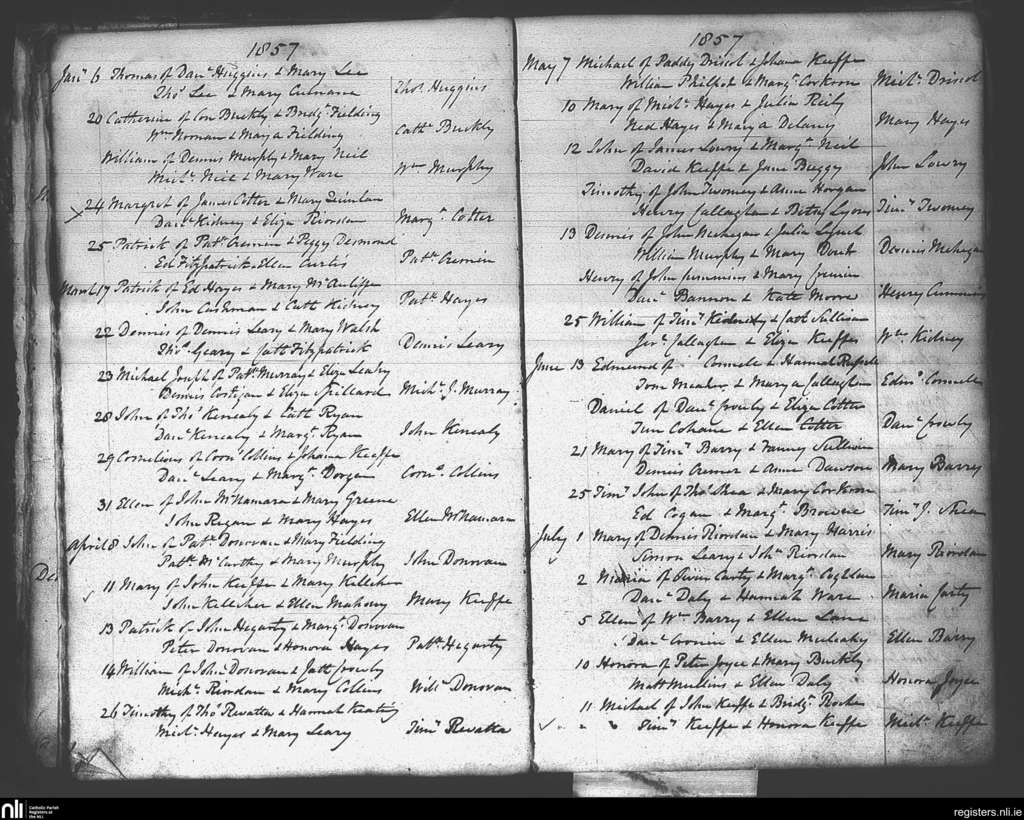 1857
Jany 6 Thomas of Danl Huggins & Mary Lee
Thos Lee & Mary Culnane Thos. Huggins
20 Catherine of Con Buckly & Bridgt Fielding
Wm Noonan & Mary a Fielding Cathe Buckly
William of Dennis Murphy & Mary Neil
Michl. Neil & Mary Ware Wm Murphy
24 Margret of James Cotter & Mary Quinlan
Danl Kidney & Eliza Riordan Margt Cotter
25 Patrick of Patk Cremin & Peggy Desmond
Ed Fitzpatrick & Ellen Curtis Patk Cremin
March 17 Patrick of Ed Hayes & Mary McAuliffe
John Cashman & Cath Kidney Patk Hayes
22 Dennis of Dennis Leary & Mary Walsh
Thos Geary & Cath Fitzpatrick Dennis Leary
23 Michael Joseph of Patk. Murray & Eliza Leahy
Dennis Costigan & Eliza Spillard Michl. J. Murray
28 John of Thos Kenealy & Cath Ryan
Danl Kenealy & Margt. Ryan John Kenealy
29 Cornelious of Corns Collins & Johana Keeffe
Danl Leary & Margt. Dorgan Corns. Collins
31 Ellen of John McNamara & Mary Greene
John Regan & Mary Hayes Ellen McNamara
April 8 John of Patk Donovan & Mary Fielding
Patk McCarthy & Mary Murphy John Donovan
11 Mary of John Keeffe & Mary Kelleher
John Kelleher & Ellen Mahony Mary Keeffe
13 Patrick of John Hegarty & Margt Donovan
Peter Donovan & Honora Hayes Patk Hegarty
14 William of John Donovan & Cath Crowly
Michl. Riordan & Mary Collins Willm Donovan
26 Timothy of Thos Revatta & Hannah Keating
Michl. Hayes & Mary Leary Timy Revatta
1857
May 7 Michael of Paddy Driscol & Johana Keeffe
William Philpot & Margt. Corkran Michl. Driscol
10 Mary of Michl. Hayes & Julia Reily
Ned Hayes & Mary a Delaney Mary Hayes
12 John of James Lowry & Margt Neil
David Keeffe & Jane Buggy John Lowry
Timothy of John Twomey & Anne Horgan
Henry Callaghan & Betsy Lyons Timy Twomey
13 Dennis of John Mehegan & Julia Lynch
William Murphy & Mary Dennis Mehegan
Henry of John Cummins & Mary Cronin
Danl Bannon & Kate Moore Henry Cummins
25 William of Timy Kidney & Cath Sullivan
Jery Callaghan & Eliza Keeffe Wm Kidney
June 13 Edmund of Connell & Hannah
Tom Meaher & Mary a Callaghan Edmd Connell
Daniel of Danl Crowly & Eliza Cotter
Tim Cohane & Ellen Cotter Danl Crowly
21 Mary of Timy Barry & Fanny Sullivan
Dennis Cremer & Anne Dawson Mary Barry
25 Timy John of Thos Shea & Mary Corkran
Ed Cogan & Margt. Browne Timy J. Shea
July 1 Mary of Dennis Riordan & Mary Harris
Simon Leary & Joha Riordan Mary Riordan
2 Maria of Owen Carty & Margt. Coghlan
Danl Daly & Hannah Ware Maria Carty
5 Ellen of Wm Barry & Ellen Lane
Danl Cronin & Ellen Mulcahy Ellen Barry
10 Honora of Peter Joyce & Mary Buckly
Matt Mullins & Ellen Daly Honora Joyce
11 Michael of John Keeffe & Bridgt Roche
Timy Keeffe & Honora Keeffe Michl. Keeffe
nli Catholic Parish Registers at the NLI
registers.nli.ie